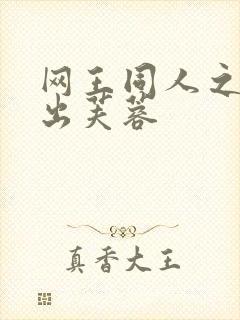 网王同人之
出芙蓉
真香大王